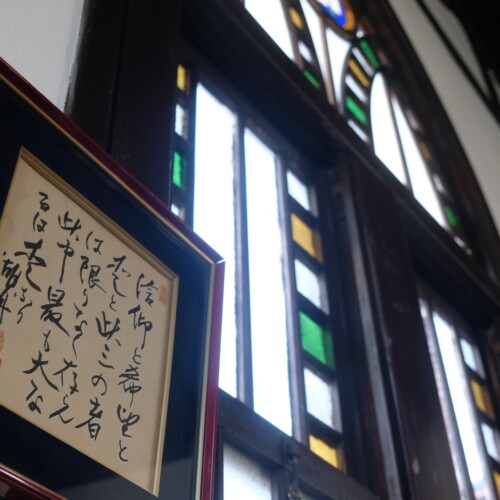 信仰と希望と
愛と此三の者
は限りなく存ん
此中最も大な
るは愛なり